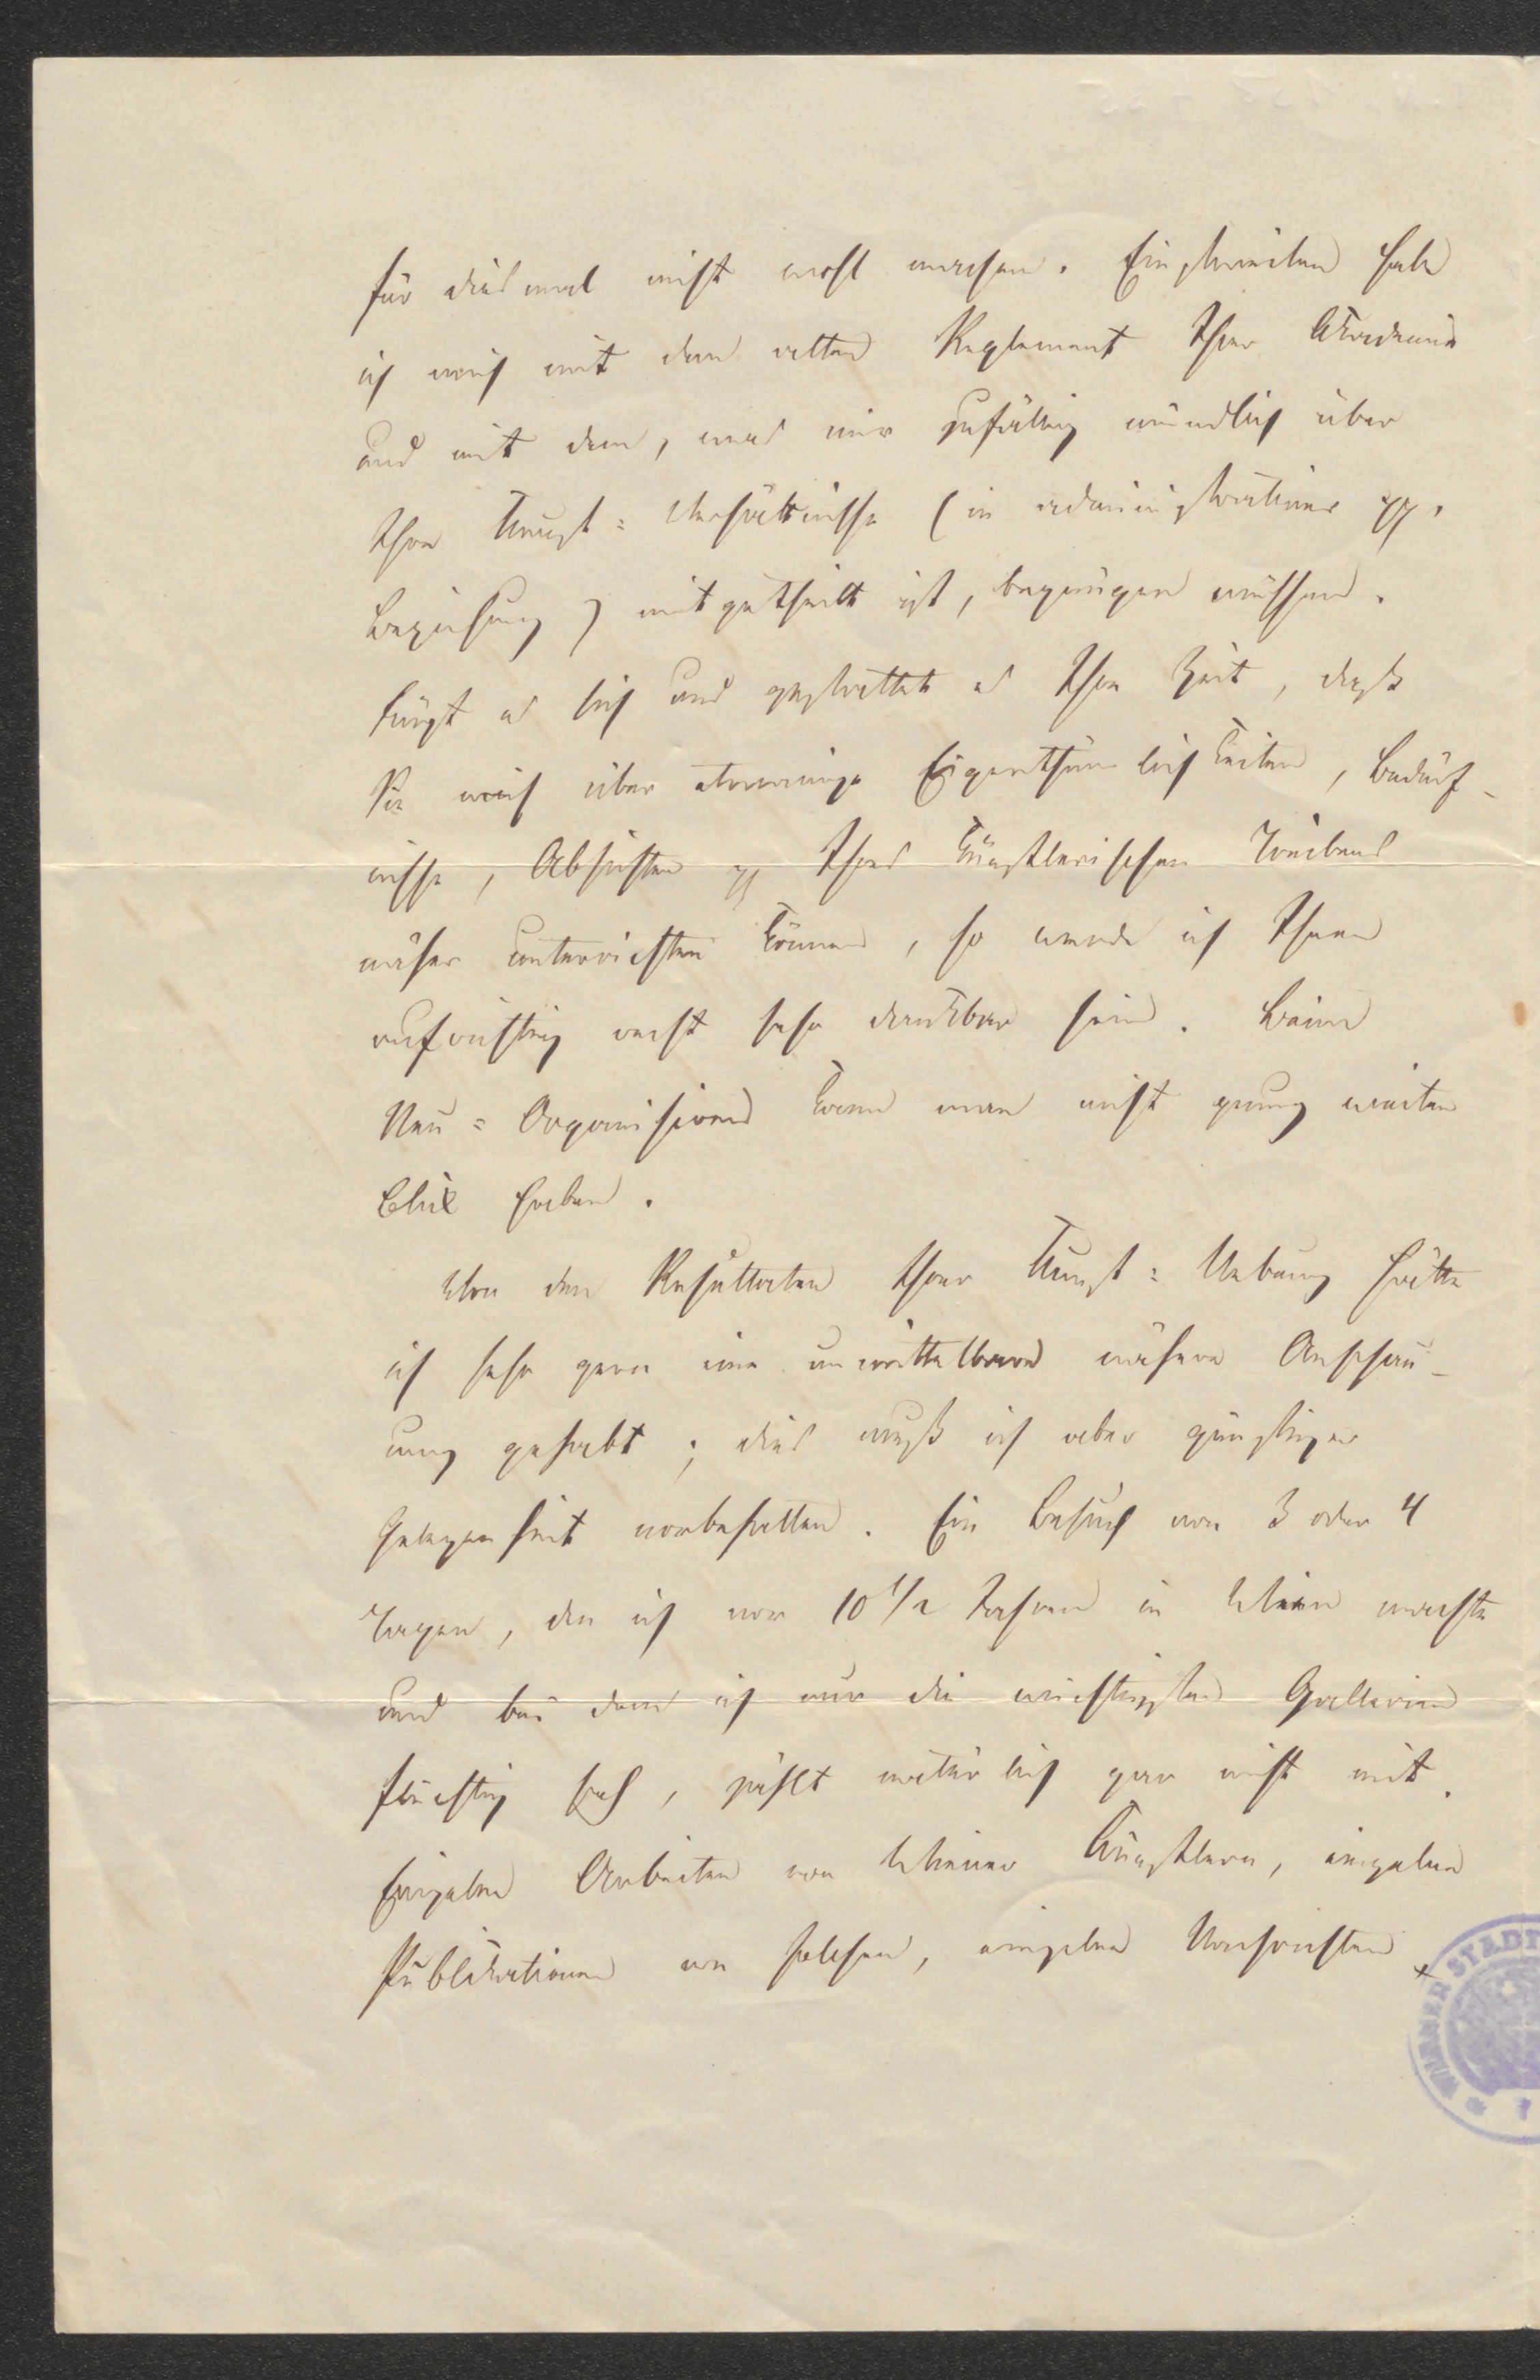 für diesmal nicht wohl machen. Einstweilen habe
ich mich mit dem alten Reglement Ihrer Akademie
und mit dem, was mir zufällig mündlich über
Ihre Kunst=Verhältnisse (in administrativer pp.
Beziehung) mitgetheilt ist, begnügen müssen.
Fügt es sich und gestattet es Ihre Zeit, daß
Sie mich über etwanige Eigenthümlichkeiten, Bedürf-
nisse, Absichten pp Ihres künstlerischen Treibens
näher unterrichten können, so werde ich Ihnen
aufrichtig recht sehr dankbar sein. Beim
Neu=Organisiren kann man nicht genug weiten
Blick haben.
Von den Resultaten Ihrer Kunst=Uebung hätte
ich sehr gern eine unmittelbare nähere Anschau-
ung gehabt; dies muß ich aber günstiger
Gelegenheit vorbehalten. Ein Besuch von 3 oder 4
Tagen, den ich vor 10 1/2 Jahren in Wien machte
und bei dem ich nur die wichtigsten Gallerien
flüchtig sah, zählt natürlich gar nicht mit.
Einzelne Arbeiten von Wiener Künstlern, einzelne
Publikationen von solchen, einzelne Nachrichten
WIENER STADT